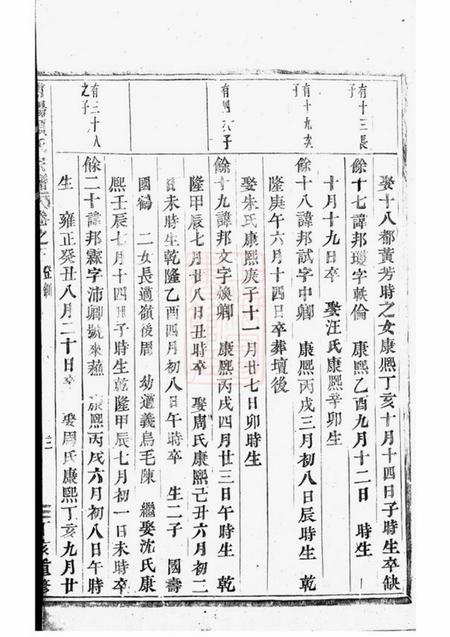 娶十八都黃芳時之女康熙丁亥十月十四日子時生卒缺
有十三長子
餘十七諱邦 字軼倫 康熙乙酉九月十二日 時生
十月十九日卒 娶汪氏康熙辛卯生
有十九次子
餘十八諱邦試字中卿 康熙丙戌三月初八日辰時生 乾
隆庚午六月十四日卒葬壇後
娶朱氏康熙庚子十一月廿七日卯時生
有四六子
餘十九諱邦文字煥卿 康熙丙戌四月廿三日午時生 乾
隆甲辰七月廿八日丑時卒 娶周氏康熙己丑六月初二
日未時生乾隆乙酉四月初八日午時卒 生二子 國壽
國鶴 二女長適嶺後周 幼適義烏毛陳 繼娶沈氏康
熙壬辰七月十四日子時生乾隆甲辰七月初一日未時卒
有三十八之子
餘二十諱邦霖字沛卿號來蘓 康熙丙戌六月初八日午時
生 雍正癸丑八月二十日卒 娶周氏康熙丁亥九月廿
氏宗譜 卷之 三 丁亥重修